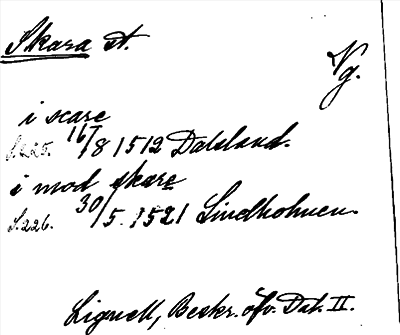 Skara st.
Vg.
i scare
S. 225. 16/8 1512 Dalsland.
i mod skare
S. 226. 30/5 1521 Lindholmen.
Lignell, Beskr. öfv. Dal. II.